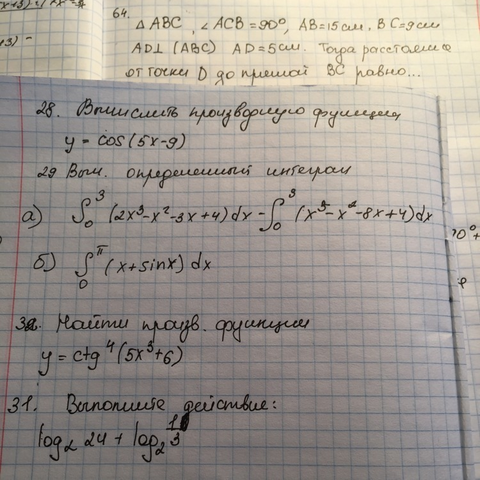 64.
△ ABC, ∠ ACB = 90°, AB = 15 см, BC = 9 см
AD⊥ (ABC) AD = 5 см. Тогда расстояние
от точки D до прямой BC равно...
28. Вычислить производную функции
y = cos(5x-9)
29 Выч. определенный интеграл
а) ∫₀³ (2x³-x²-3x+4)dx - ∫₀³ (x³-x²-8x+4)dx
б) ∫₀^π (x+sinx)dx
Найти произв. функции
y = ctg⁴(5x³+6)
31. Выполните действие:
log₂ 24 + log₂